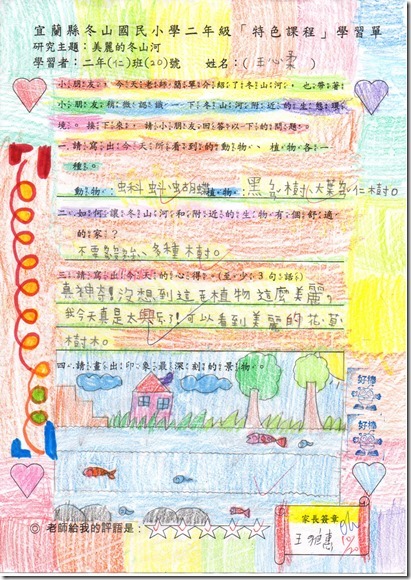 宜蘭縣冬山國民小學二年級「特色課程」學習單
研究主題：美麗的冬山河
學習者：二年(仁)班(20)號 姓名：(王心柔)
小朋友，今天老師簡單介紹了冬山河，也帶著
小朋友稍微認識一下冬山河附近的生態環
境。接下來，請小朋友回答以下的問題。
一、請寫出今天所看到的動物、植物各一
種。
動物：蝌蚪、蝴蝶 植物：黑色樹、欖仁樹。
二、如何讓冬山河和附近的生物有個舒適
的家？
不要亂丟垃圾、多種樹。
三、請寫出今天的心得。(至少3句話)
真神奇！沒想到這些植物這麼美麗，
我今天真是太興奮了！可以看到美麗的花草
樹木。
四、請畫出印象最深刻的景物。
好棒
好棒
◎ 老師給我的評語是：☆☆☆☆☆
家長簽章
王雅
10/20